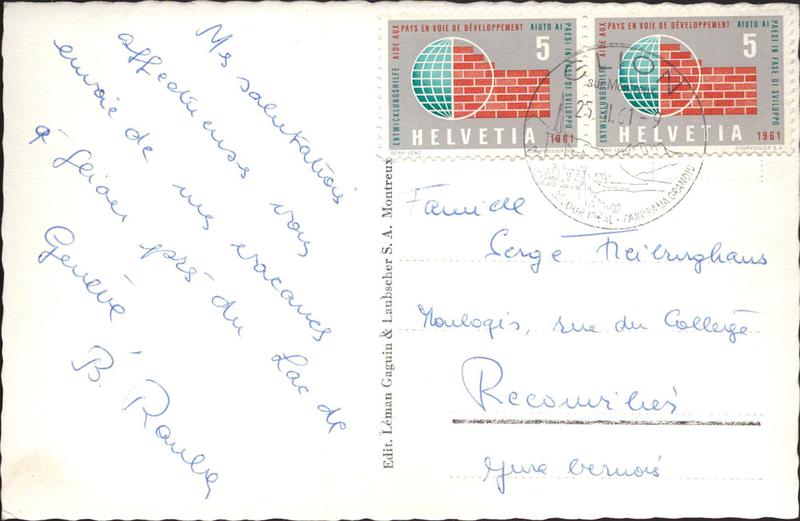 Ms salutations
affectueuses vous
envoie de mes vacances
à Glion près du Lac de
Genève
B.
Edit. Léman Gaguin & Laubscher S. A. Montreux
ENTWICKLUNGSHILFE AIDE AUX PAYS EN VOIE DE DÉVELOPPEMENT AIUTO AI PAESI IN FASE DI SVILUPPO
5
HELVETIA 1961
ENTWICKLUNGSHILFE AIDE AUX PAYS EN VOIE DE DÉVELOPPEMENT AIUTO AI PAESI IN FASE DI SVILUPPO
5
HELVETIA 1961
COURVOISIER S.A.
GLION
SUR MONTREUX
PANORAMA GRANDIOSE
Famille
Serge Heilinghaus
Moulogis, rue du Collège
Reconvilier
Jura bernois